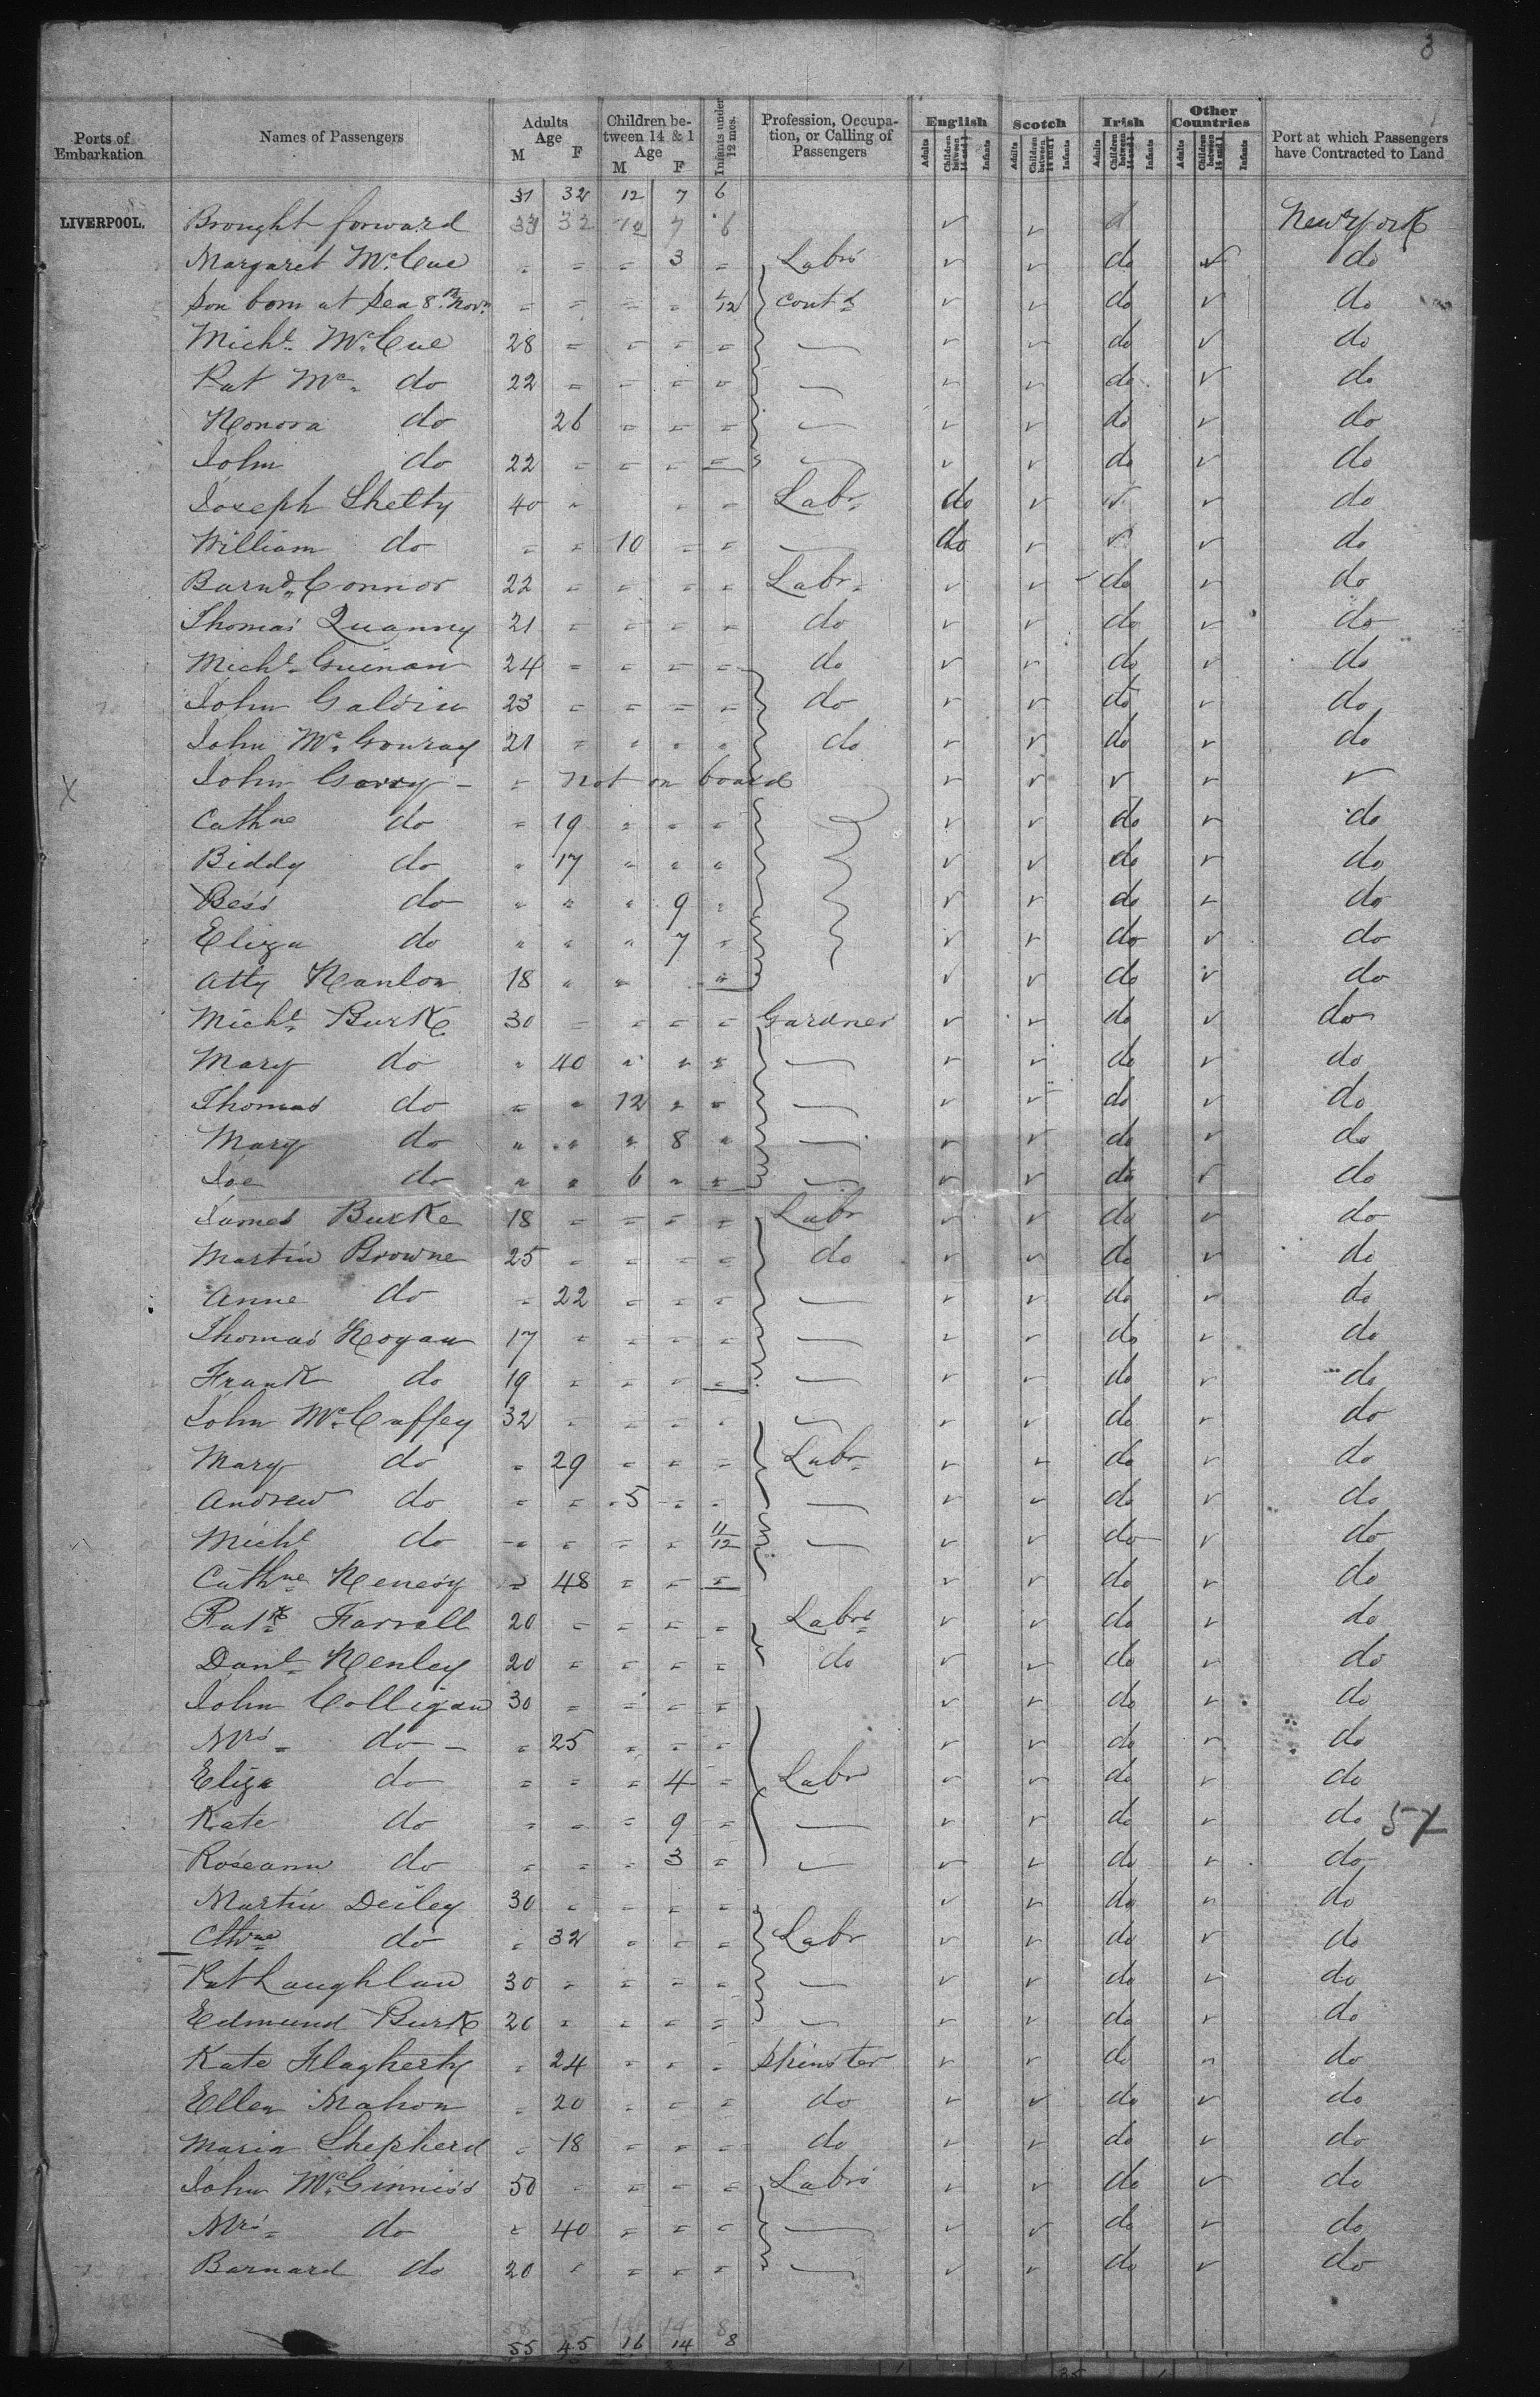 8
Ports of Embarkation Names of Passengers Adults Age M F Children between 14 & 1 Age M F Infants under 12 mos. Profession, Occupation, or Calling of Passengers English Adults Children between 14 and 1 Infants Scotch Adults Children between 14 and 1 Infants Irish Adults Children between 14 and 1 Infants Other Countries Adults Children between 14 and 1 Infants Port at which Passengers have Contracted to Land
31 32 12 7 6
LIVERPOOL. Brought forward 32 7 6 ✓ ✓ d New York
Margaret Mc. Cue " " " 3 " Labrs ✓ ✓ do ✓ do
Son born at Sea 8th Novr. " " " " 1/12 contd ✓ ✓ do ✓ do
Michl. Mc. Cue 28 " " " " — ✓ ✓ do ✓ do
Pat Mc. do 22 " " " " — ✓ ✓ do ✓ do
Honora do 26 " " " — ✓ ✓ do ✓ do
John do 22 " " " " — ✓ ✓ do ✓ do
Joseph Shelty 40 " " " Labr. do ✓ ✓ ✓ do
William do " " 10 " " — do ✓ ✓ ✓ do
Barnd. Connor 22 " " " " Labr. ✓ ✓ do ✓ do
Thomas Quanny 21 " " " " do ✓ ✓ do ✓ do
Michl. Guinan 24 " " " " do ✓ ✓ do ✓ do
John Galvin 23 " " " " do ✓ ✓ do ✓ do
John Mc. Gouray 21 " " " " do ✓ ✓ do ✓ do
X John Garry - " Not on board ✓ ✓ ✓ ✓ ✓
Cathne do " 19 " " " ✓ ✓ do ✓ do
Biddy do " 17 " " " ✓ ✓ do ✓ do
Bess do " " " 9 " ✓ ✓ do ✓ do
Eliza do " " " 7 " ✓ ✓ do ✓ do
Atty Hanlon 18 " " " ✓ ✓ do ✓ do
Michl. Burke 30 " " " " Gardner ✓ ✓ do ✓ do
Mary do " 40 " " " — ✓ ✓ do ✓ do
Thomas do " " 12 " " — ✓ ✓ do ✓ do
Mary do " " " 8 " — ✓ ✓ do ✓ do
Joe do " " 6 " " — ✓ ✓ do ✓ do
James Burke 18 " " " " Labr ✓ ✓ do ✓ do
Martin Browne 25 " " " " do ✓ ✓ do ✓ do
Anne do " 22 " " " — ✓ ✓ do ✓ do
Thomas Hogan 17 " " " " — ✓ ✓ do ✓ do
Frank do 19 " " " " — ✓ ✓ do ✓ do
John Mc. Caffey 32 " " " " — ✓ ✓ do ✓ do
Mary do " 29 " " " Labr. ✓ ✓ do ✓ do
Andrew do " " 5 " " — ✓ ✓ do ✓ do
Michl do " " " " 11/12 — ✓ ✓ do ✓ do
Cathne. " 48 " " " ✓ ✓ do ✓ do
Patk. Farrell 20 " " " " Labrs ✓ ✓ do ✓ do
Danl. Henley 20 " " " " do ✓ ✓ do ✓ do
John Colligan 30 " " " " ✓ ✓ do ✓ do
Mrs. do - " 25 " " " ✓ ✓ do ✓ do
Eliza do " " " 4 " Labr ✓ ✓ do ✓ do
Kate do " " " 9 " — ✓ ✓ do ✓ do 57
Roseann do " " " 3 " — ✓ ✓ do ✓ do
Martin Deiley 30 " " " " ✓ ✓ do ✓ do
Cthne do " 32 " " " Labr ✓ ✓ do ✓ do
Pat Laughlan 30 " " " " — ✓ ✓ do ✓ do
Edmund Burk 26 " " " " — ✓ ✓ do ✓ do
Kate Flagherty " 24 " " " Spinster ✓ ✓ do ✓ do
Ellen Mahon " 20 " " " do ✓ ✓ do ✓ do
Maria Shepherd " 18 " " " do ✓ ✓ do ✓ do
John McGinniss 50 " " " " Labrs ✓ ✓ do ✓ do
Mrs. do " 40 " " " — ✓ ✓ do ✓ do
Barnard do 20 " " " " — ✓ ✓ do ✓ do
55 45 16 14 8